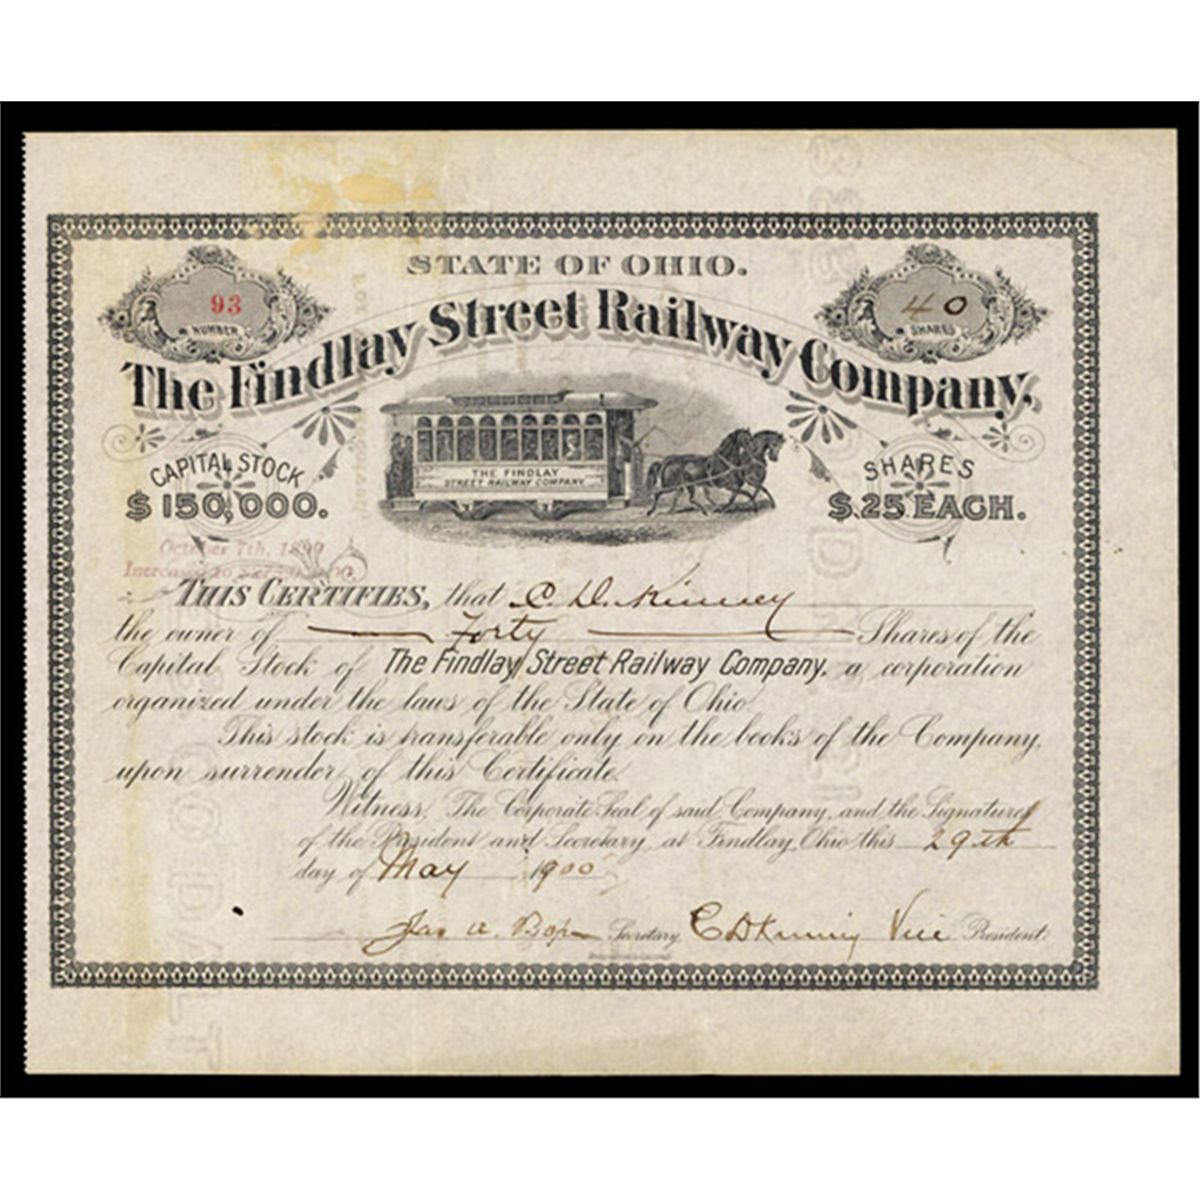 STATE OF OHIO.
93
NUMBER
40
SHARES
The Findlay Street Railway Company.
THE FINDLAY
STREET RAILWAY COMPANY
CAPITAL STOCK
$150,000.
SHARES
$.25 EACH.
October 7th, 18
Increased to
THIS CERTIFIES, that C. D. Kinney
the owner of Forty Shares of the
Capital Stock of The Findlay Street Railway Company. a corporation
organized under the laws of the State of Ohio.
This stock is transferable only on the books of the Company,
upon surrender of this Certificate.
Witness, The Corporate Seal of said Company, and the Signatures
of the President and Secretary, at Findlay, Ohio this 29th
day of May 1900
Jas A. Secretary. C D Kinney Vice President.